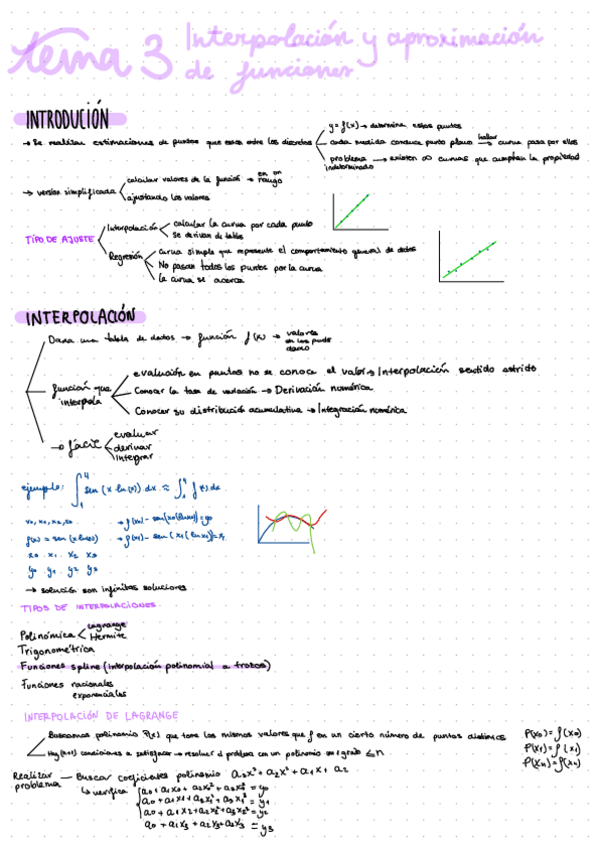 tema 3 Interpolación y aproximación
de funciones
INTRODUCIÓN
→ Se realizan estimaciones de puntos que estan entre los discretos
y = f(x) → determina estos puntos
cada medida conduce punto plano → hallar curva pasa por ellos
problema indeterminado → existen ∞ curvas que cumplan la propiedad
→ version simplificada
calcular valores de la función → en un rango
ajustando los valores
TIPO DE AJUSTE
Interpolación
calcular la curva por cada punto
se derivan de tablas
Regresión
curva simple que represente el comportamiento general de datos
No pasan todos los puntos por la curva
la curva se acerca
INTERPOLACIÓN
Dada una tabla de datos → función f(x) → valores
función que interpola
evaluación en puntos no se conoce el valor → Interpolación sentido estrido
Conocer la tasa de variación → Derivación numérica
Conocer su distribució acumulativa → Integración numérica
→ fácil
evaluar
derivar
integrar
ejemplo: ∫₁⁴ sen (x ln(x)) dx ≈ ∫₁⁴ f(x) dx
f(x) = sen (x ln(x))
x0 x1 x2 x3
y0 y1 y2 y3
→ solución son infinitas soluciones
TIPOS DE INTERPOLACIONES
Polinómica
Lagrange
Hermite
Trigonométrica
Funciones spline (interpolación polinomial a trozos)
Funciones racionales
exponenciales
INTERPOLACIÓN DE LAGRANGE
Buscamos polinomio P(x) que tome los mismos valores que f en un cierto número de puntos distintos
Hay (n+1) condiciones a satisfacer → resolver el problema con un polinomio grado ≤ n
P(x0) = f(x0)
P(x1) = f(x1)
P(xn) = f(xn)
Realizar problema — Buscar coeficientes polinomio a3x³ + a2x² + a1x + a2
↳ verifica
a0 + a1x0 + a2x0² + a3x0³ = y0
a0 + a1x1 + a2x1² + a3x1³ = y1
a0 + a1x2 + a2x2² + a3x2³ = y2
a0 + a1x3 + a2x3 + a3x3 = y3